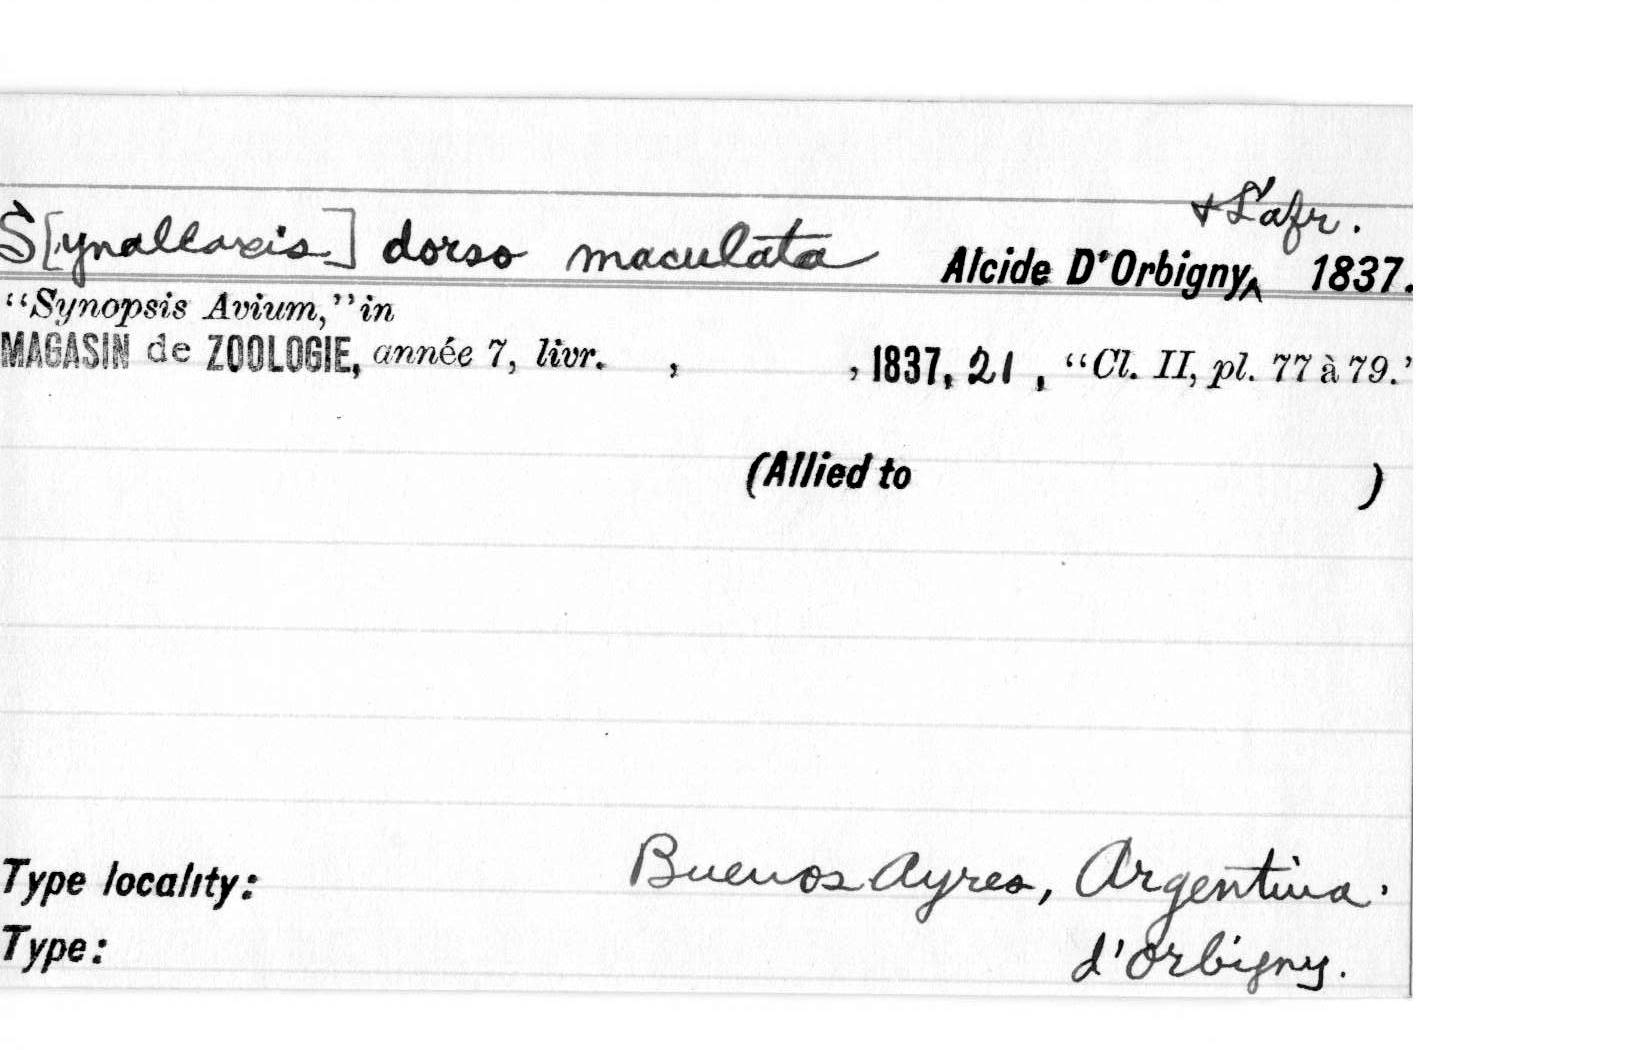 S[ynallaxis] dorso maculata Alcide D'Orbigny ^ & Lafr. 1837.
"Synopsis Avium," in
MAGASIN de ZOOLOGIE, année 7, livr. , , 1837, 21 , "Cl. II, pl. 77 à 79."
(Allied to )
Type locality: Buenos Ayres, Argentina.
Type: d'Orbigny.